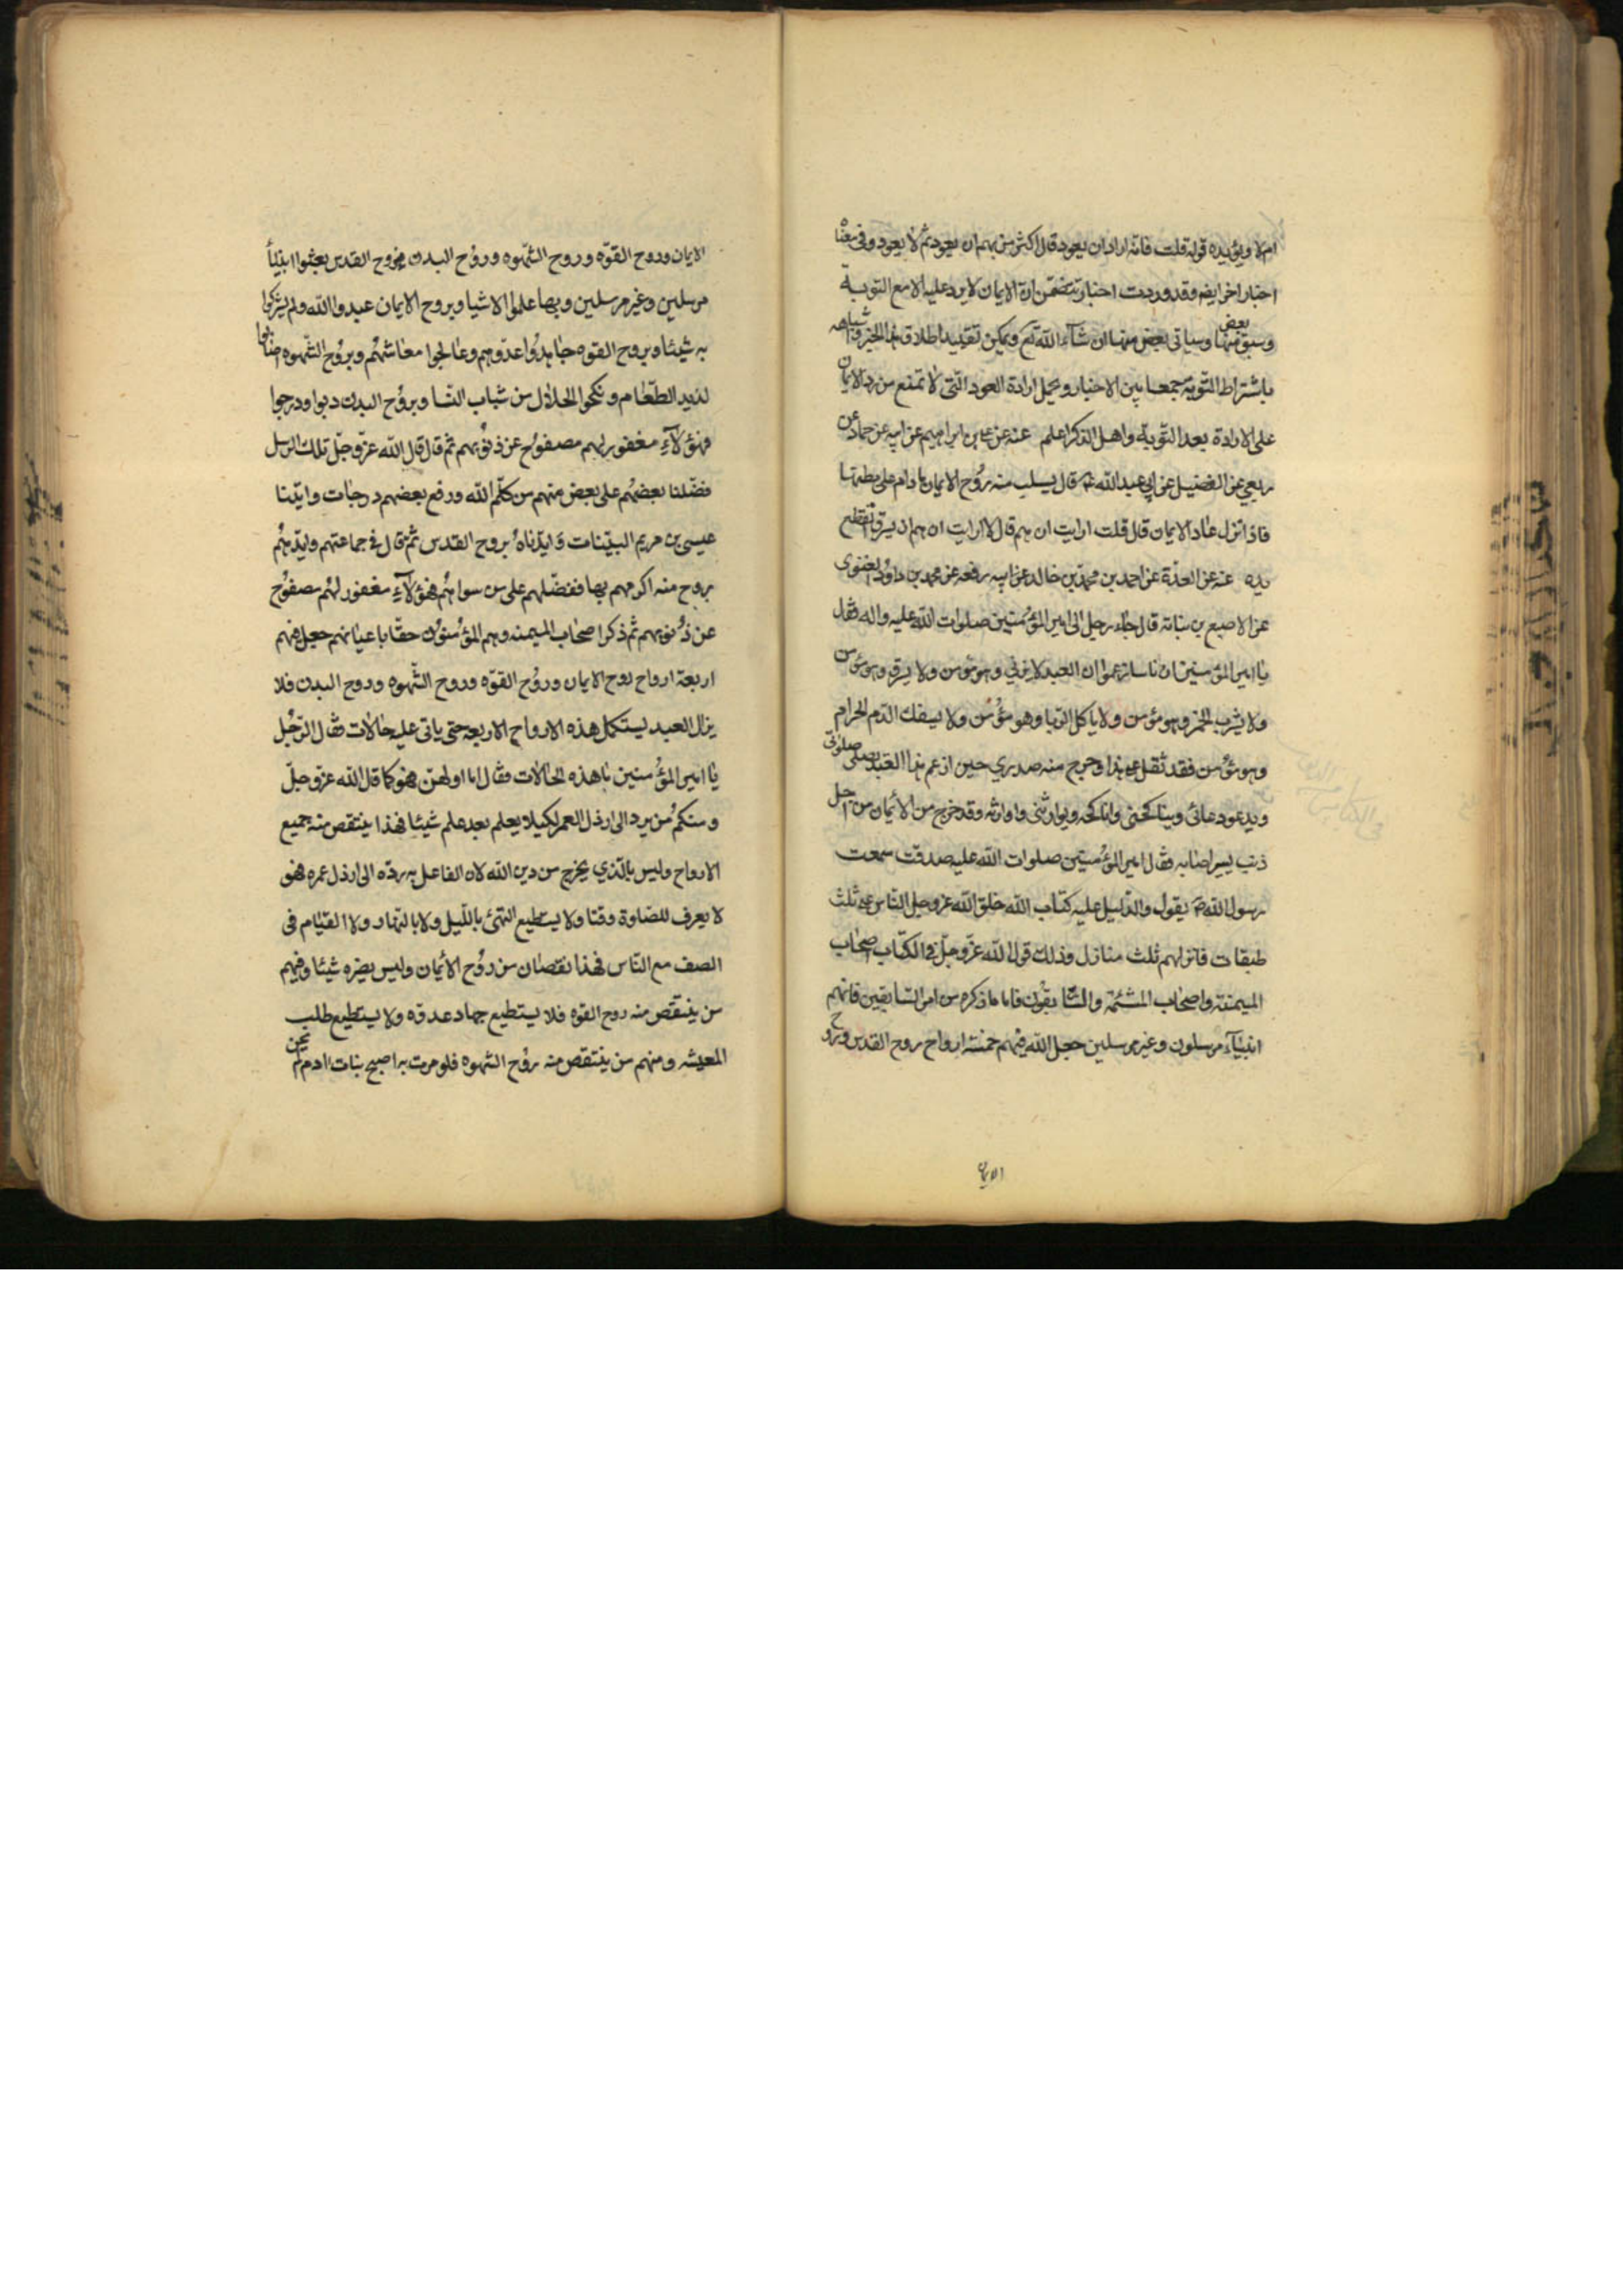 ام لا ويؤيده قوله قلت فانه اراد ان يعود قال ما اكثر من يهم ان يعود ثم لا يعود وفى معناه
اخبار اخر ايضا وقد وردت اخبار تتضمن ان الايمان لا يرد عليه الا مع التوبة
وسبق بعض منها وسياتى بعض منها ان شاء الله تع ويمكن تقييد اطلاق هذا الخبر واشباهه
باشتراط التوبة جمعا بين الاخبار ويحمل ارادة العود التى لا تمنع من رد الايمان
على الارادة بعد التوبة واهل الذكر اعلم عنه عن على بن ابراهيم عن ابيه عن حماد عن
ربعي عن الفضيل عن ابي عبد الله ع قال يسلب منه روح الايمان ما دام على بطنها
فاذا نزل عاد الايمان قال قلت ارايت ان هم قال لا ارايت ان هم ان يسرق اتقطع
يده عنه عن العدة عن احمد بن محمد بن خالد عن ابيه رفعه عن محمد بن داود الغنوى
عن الاصبغ بن نباتة قال جاء رجل الى امير المؤمنين صلوات الله عليه واله فقال
يا امير المؤمنين ان ناسا زعموا ان العبد لا يزني وهو مؤمن ولا يسرق وهو مؤمن
ولا يشرب الخمر وهو مؤمن ولا ياكل الربا وهو مؤمن ولا يسفك الدم الحرام
وهو مؤمن فقد ثقل على هذا وحرج منه صدري حين ازعم هذا العبد يصلى صلوتى
ويدعو دعائى ويناكحنى واناكحه ويوارثنى واوارثه وقد خرج من الأيمان من اجل
ذنب يسير اصابه فقال امير المؤمنين صلوات الله عليه صدقت سمعت
رسول الله ص يقول والدليل عليه كتاب الله خلق الله عز وجل الناس على ثلث
طبقات فانزلهم ثلث منازل وذلك قول الله عز وجل فى الكتاب اصحاب
الميمنة واصحاب المشئمة والسابقون فاما ما ذكره من امر السابقين فانهم
انبياء مرسلون وغير مرسلين جعل الله فيهم خمسة ارواح روح القدس وروح
الايمان
الايمان وروح القوه وروح الشهوه وروح البدن فبروح القدس بعثوا انبياء
مرسلين وغير مرسلين وبها علموا الاشيا وبروح الايمان عبدوا الله ولم يشركوا
به شيئا وبروح القوه جاهدوا عدوهم وعالجوا معاشهم وبروح الشهوه اصابوا
لذيد الطعام ونكحوا الحلال من شباب النسا وبروح البدن دبوا ودرجوا
فهؤلاء مغفور لهم مصفوح عن ذنوبهم ثم قال قال الله عز وجل تلك الرسل
فضلنا بعضهم على بعض منهم من كلم الله ورفع بعضهم درجات وايتنا
عيسى بن مريم البينات وايدناه بروح القدس ثم قال فى جماعتهم وايدهم
بروح منه اكرمهم بها ففضلهم على من سواهم فهؤلاء مغفور لهم مصفوح
عن ذنوبهم ثم ذكر اصحاب الميمنه وهم المؤمنون حقا باعيانهم جعل فيهم
اربعة ارواح روح الايمان وروح القوه وروح الشهوه وروح البدن فلا
يزال العبد يستكمل هذه الارواح الاربعه حتى ياتى عليه حالات فقال الرجل
يا امير المؤمنين ما هذه الحالات فقال اما اولهن فهو كما قال الله عز وجل
ومنكم من يرد الى ارذل العمر لكيلا يعلم بعد علم شيئا فهذا ينتقص منه جميع
الارواح وليس بالذي يخرج من دين الله لان الفاعل به رده الى ارذل عمره فهو
لا يعرف للصلوة وقتا ولا يستطيع التهجد بالليل ولا بالنهار ولا القيام فى
الصف مع الناس فهذا نقصان من روح الأيمان وليس يضره شيئا وفيهم
من ينتقص منه روح القوه فلا يستطيع جهاد عدوه ولا يستطيع طلب
المعيشه ومنهم من ينتقص منه روح الشهوه فلو مرت به اصبح بنات ادم لم يحن